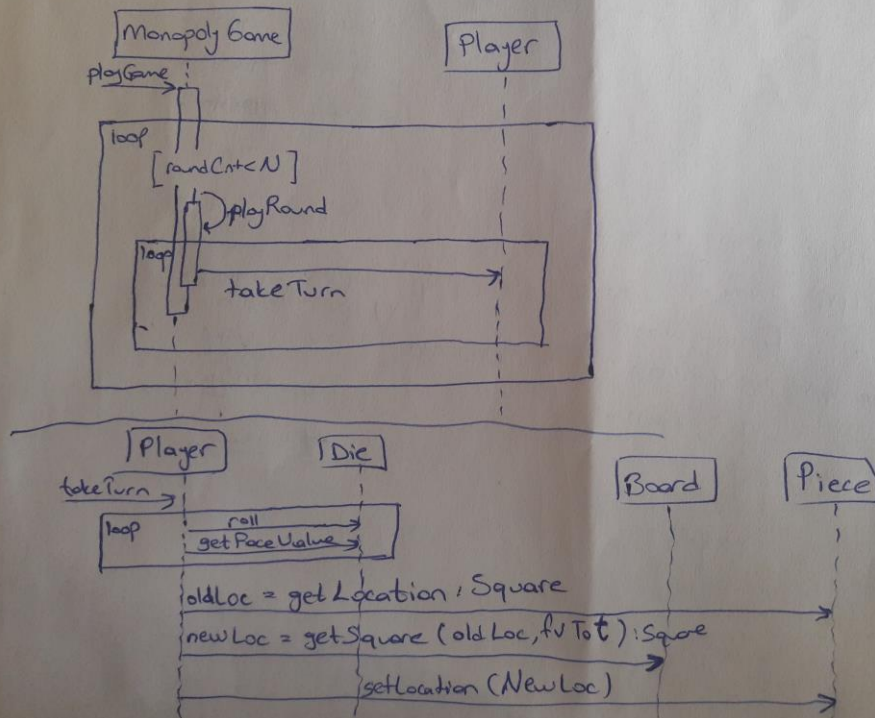 Monopoly Game
Player
playGame
loop
[roundCnt<N]
playRound
loop
takeTurn
Player
Die
Board
Piece
takeTurn
loop
roll
getFaceValue
oldLoc = getLocation : Square
newLoc = getSquare (oldLoc, fvTot) : Square
setLocation (NewLoc)